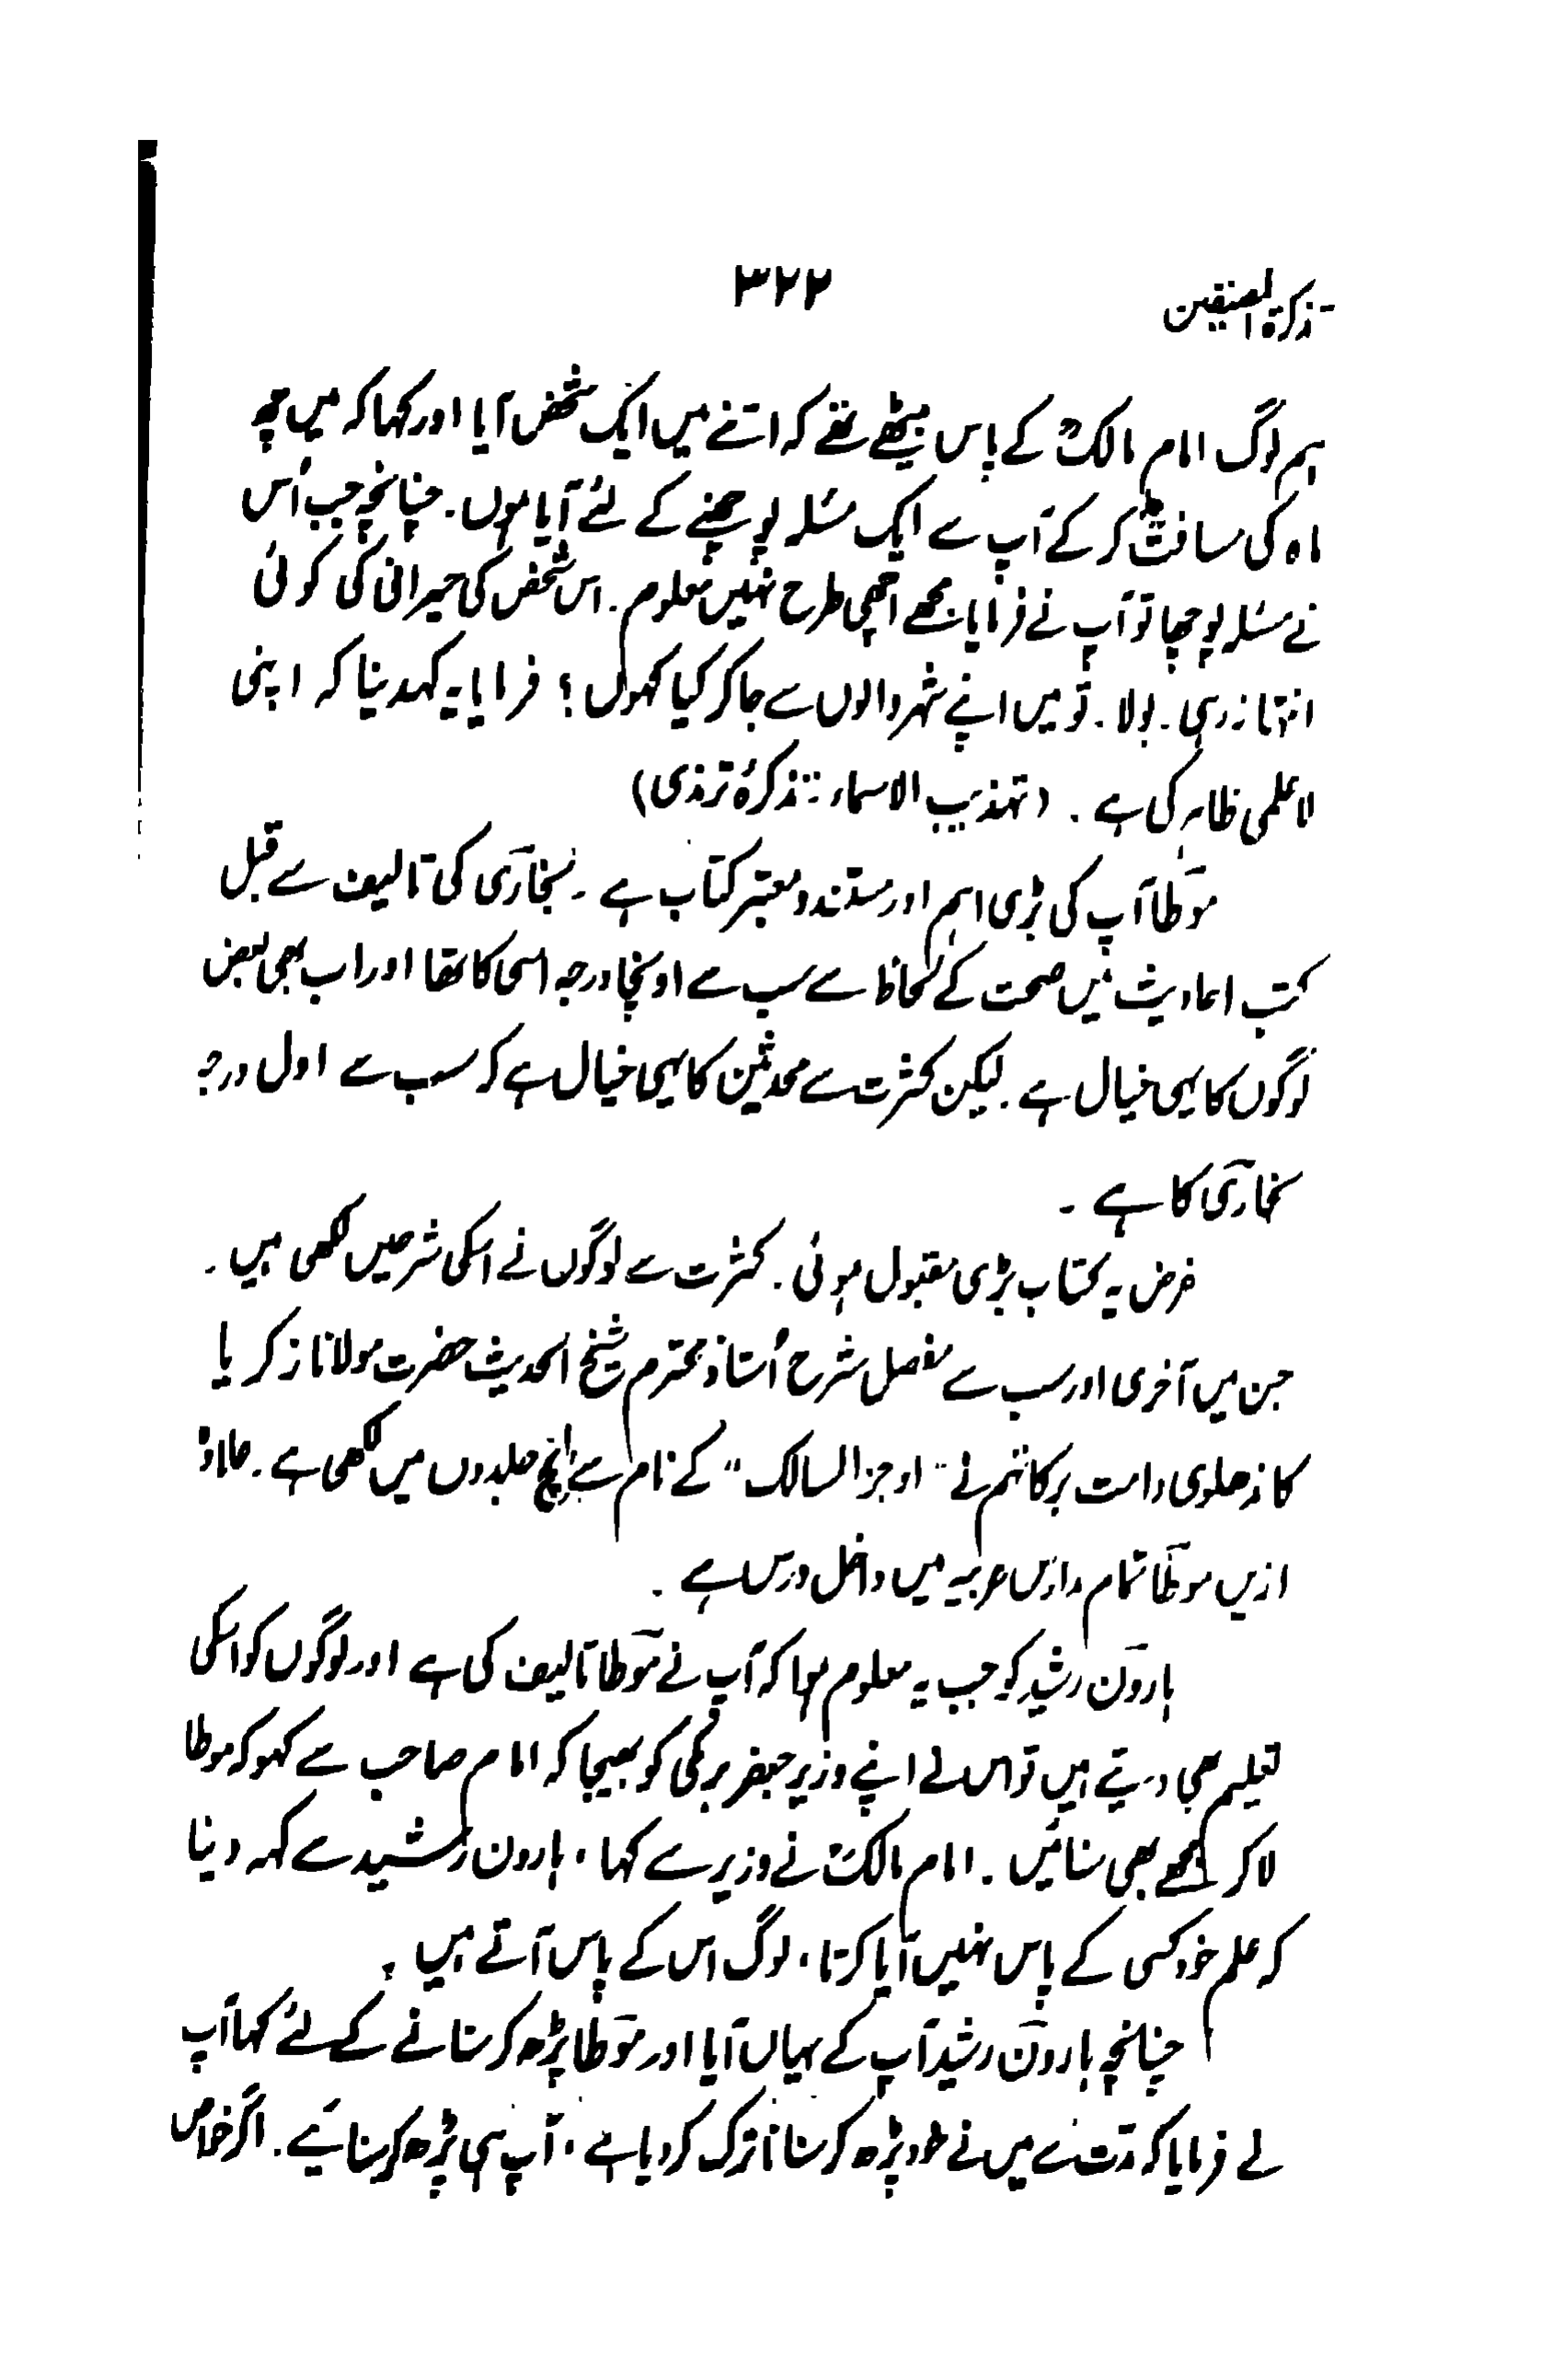 تذکرۃ المصنفین
۳۲۲
ہم لوگ امام مالکؒ کے پاس بیٹھے تھے کہ اتنے میں ایک شخص آیا اور کہا کہ میں چھ
ماہ کی مسافت طے کر کے آپ سے ایک مسئلہ پوچھنے کے لئے آیا ہوں۔ چنانچہ جب اُس
نے مسئلہ پوچھا تو آپ نے فرمایا مجھے اچھی طرح نہیں معلوم۔ اس شخص کی حیرانی کی کوئی
انتہا نہ رہی۔ بولا۔ تو میں اپنے شہر والوں سے جا کر کیا کہوں؟ فرمایا یہ کہدینا کہ اپنی
لاعلمی ظاہر کی ہے۔ (تہذیب الاسماء: تذکرہ ترمذی)
موطا آپ کی بڑی اہم اور مستند و معتبر کتاب ہے۔ بخاری کی تالیف سے قبل
کتب احادیث میں صحت کے لحاظ سے سب سے اونچا درجہ اسی کا تھا اور اب بھی بعض
لوگوں کا یہی خیال ہے۔ لیکن کثرت سے محدثین کا یہی خیال ہے کہ سب سے اول درجہ
بخاری کا ہے۔
غرض یہ کتاب بڑی مقبول ہوئی۔ کثرت سے لوگوں نے اسکی شرحیں لکھی ہیں۔
جن میں آخری اور سب سے مفصل شرح اُستاذ محترم شیخ الحدیث حضرت مولانا زکریا
کاندھلوی دامت برکاتہم نے "اوجز المسالک" کے نام سے پانچ جلدوں میں لکھی ہے۔ علاوہ
ازیں موطا تمام مدارس عربیہ میں داخل درس ہے۔
ہارون رشید کو جب یہ معلوم ہوا کہ آپ نے موطا تالیف کی ہے اور لوگوں کو اسکی
تعلیم بھی دیتے ہیں تو اس نے اپنے وزیر جعفر برمکی کو بھیجا کہ امام صاحب سے کہو کہ موطا
لا کر مجھے بھی سنائیں۔ امام مالکؒ نے وزیر سے کہا، ہارون رشید سے کہہ دینا
کہ علم خود کسی کے پاس نہیں آیا کرتا، لوگ اس کے پاس آتے ہیں۔
چنانچہ ہارون رشید آپ کے یہاں آیا اور موطا پڑھ کر سنانے کے لئے کہا آپ
نے فرمایا کہ مدت سے میں نے خود پڑھ کر سنانا ترک کر دیا ہے، آپ ہی پڑھ کر سنائیے۔ اگر خواص